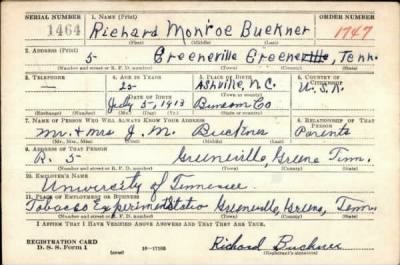 SERIAL NUMBER 1. NAME (Print) ORDER NUMBER
1464 Richard Monroe Buckner 1747
(First) (Middle) (Last)
2. ADDRESS (Print)
5 Greeneville Greene Tenn.
(Number and street or R. F. D. number) (Town) (County) (State)
3. TELEPHONE 4. AGE IN YEARS 5. PLACE OF BIRTH 6. COUNTRY OF CITIZENSHIP
— Ashville N.C.
(Town or county)
DATE OF BIRTH
July 5, 1913 Buncom Co U.S.A.
(Exchange) (Number) (Mo.) (Day) (Yr.) (State or country)
7. NAME OF PERSON WHO WILL ALWAYS KNOW YOUR ADDRESS 8. RELATIONSHIP OF THAT PERSON
Mr. & Mrs J. M. Buckner Parents
(Mr., Mrs., Miss) (First) (Middle) (Last)
9. ADDRESS OF THAT PERSON
R. 5 Greeneville, Greene Tenn.
(Number and street or R. F. D. number) (Town) (County) (State)
10. EMPLOYER'S NAME
University of Tennessee
11. PLACE OF EMPLOYMENT OR BUSINESS
Tobacco Experiment Station Greeneville, Greene, Tenn.
(Number and street or R. F. D. number) (Town) (County) (State)
I AFFIRM THAT I HAVE VERIFIED ABOVE ANSWERS AND THAT THEY ARE TRUE.
REGISTRATION CARD
D. S. S. Form 1 (over) 16—17105 Richard Buckner
(Registrant's signature)